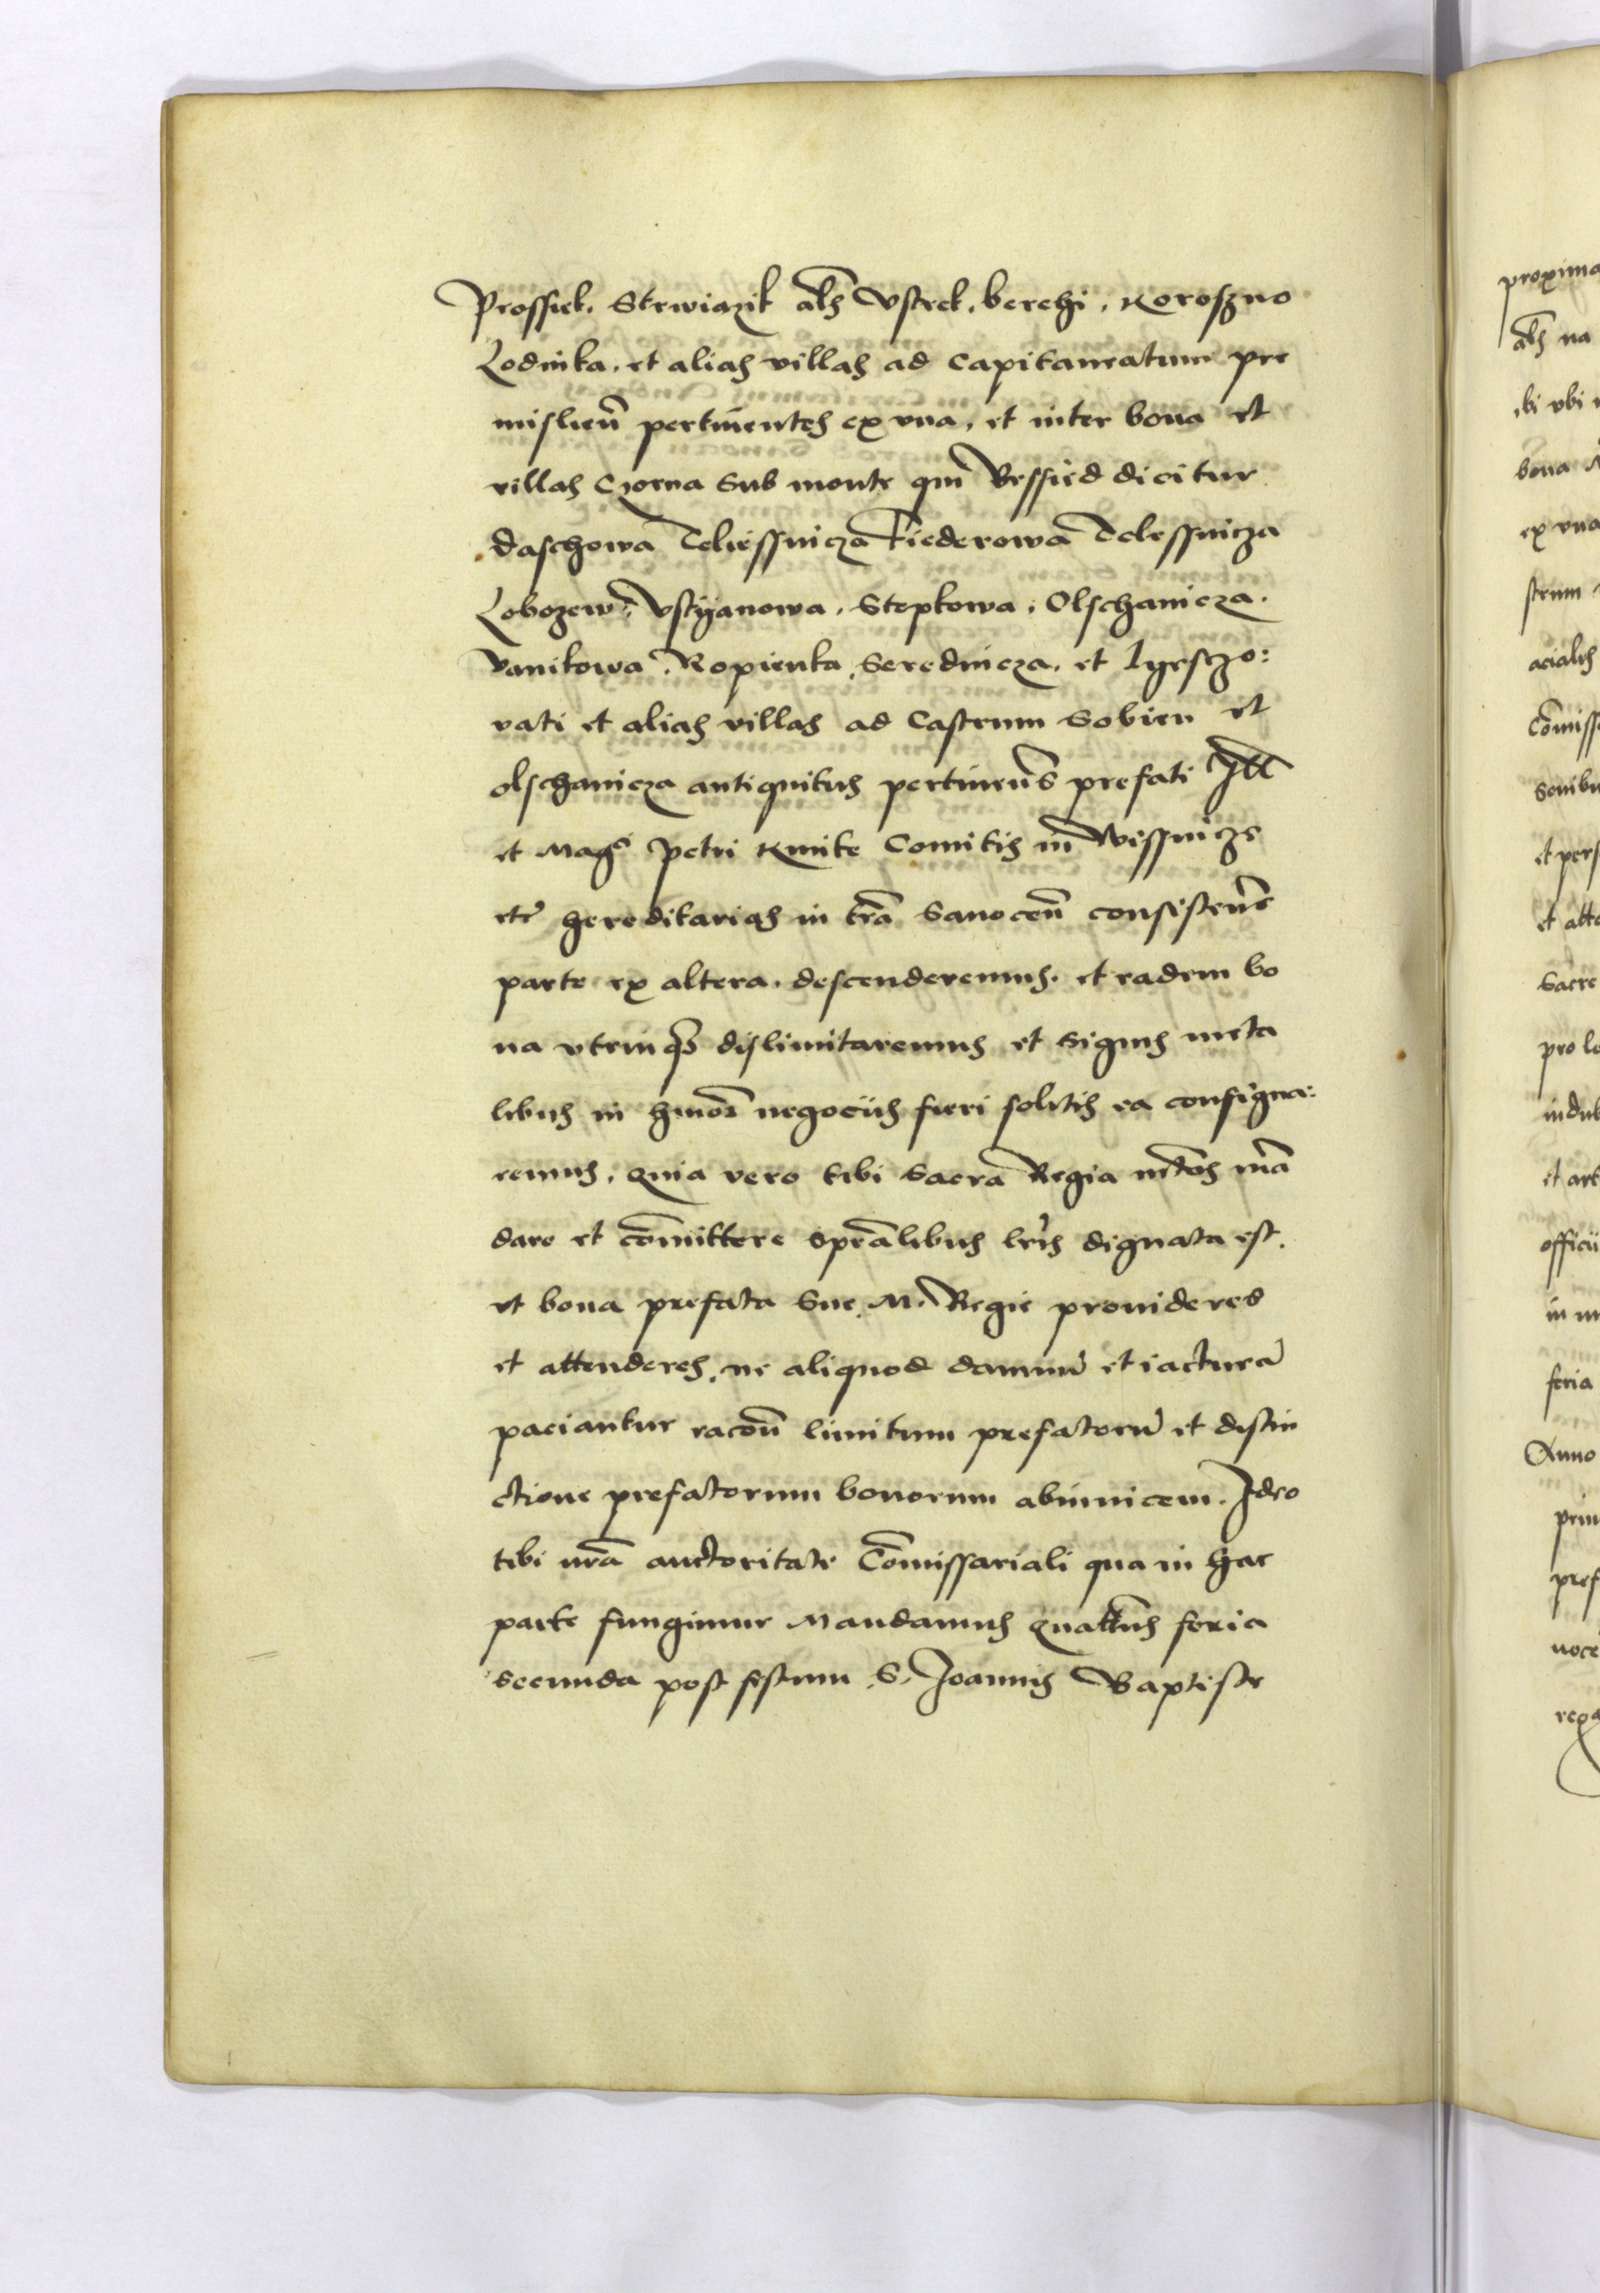 Prossiek. Strwiazik als Vstrek. berehi. Koroszno
Lodinka. et alias villas ad Capitaneatum pre
mislien̄ pertinentes ex vna. et inter bona et
villas Czorna sub monte qui Bessied dicitur
daschowa Teliessnicza Fiederowa Telessnicza
Lobozew. Vstyanowa. Stepkowa. Olschanicza.
Vanikowa. Ropienka. Serednicza. et
vati et alias villas ad Castrum Sobien et
olschanicza antiquitus pertinen̄s prefati
et Mag̃ci Petri Kmite Comitis in Wissnicze
etc̃ hereditarias in tr̄a Sanocen̄ consisten̄s
parte ex altera. descenderemus. et eadem bo
na vtrinq̨ dislimitaremus et signis meta
libus in hmōi negociis fieri solitis ea consigna:
remus. Quia vero tibi Sacra Regia mt̄as mā
dare et com̄ittere spēalibus lr̄is dignata est.
vt bona prefata Sue M. Regie prouideres
et attenderes. ne aliquod damnū et iacturā
paciantur racōn̄ limitum prefatorū et distin
ctione prefatorum bonorum abinuicem. Ideo
tibi nr̄a auctoritate Com̄issariali qua in hac
parte fungimur Mandamus quatēus feria
secunda post festum S. Joannis Baptiste
proxima
als na
ibi vbi
bona
ex vna
strum
acialis
Com̄iss
et pers
et att
Sacre
pro lo
indub
et art
officii
in
feria
Anno
prin
pref
noce
rega